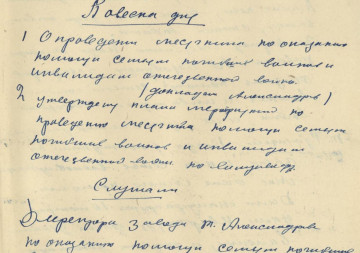 Повестка дня
1 О проведении месячника по оказанию
помощи семьям погибших воинов и
инвалидам отечественной войны.
(доклад т. Александрова)
2 утверждение плана мероприятий по
проведению месячника помощи семьям
погибших воинов и инвалидам
отечественной войны по
Слушали
Директора завода т. Александрова
по оказанию помощи семьям погибших